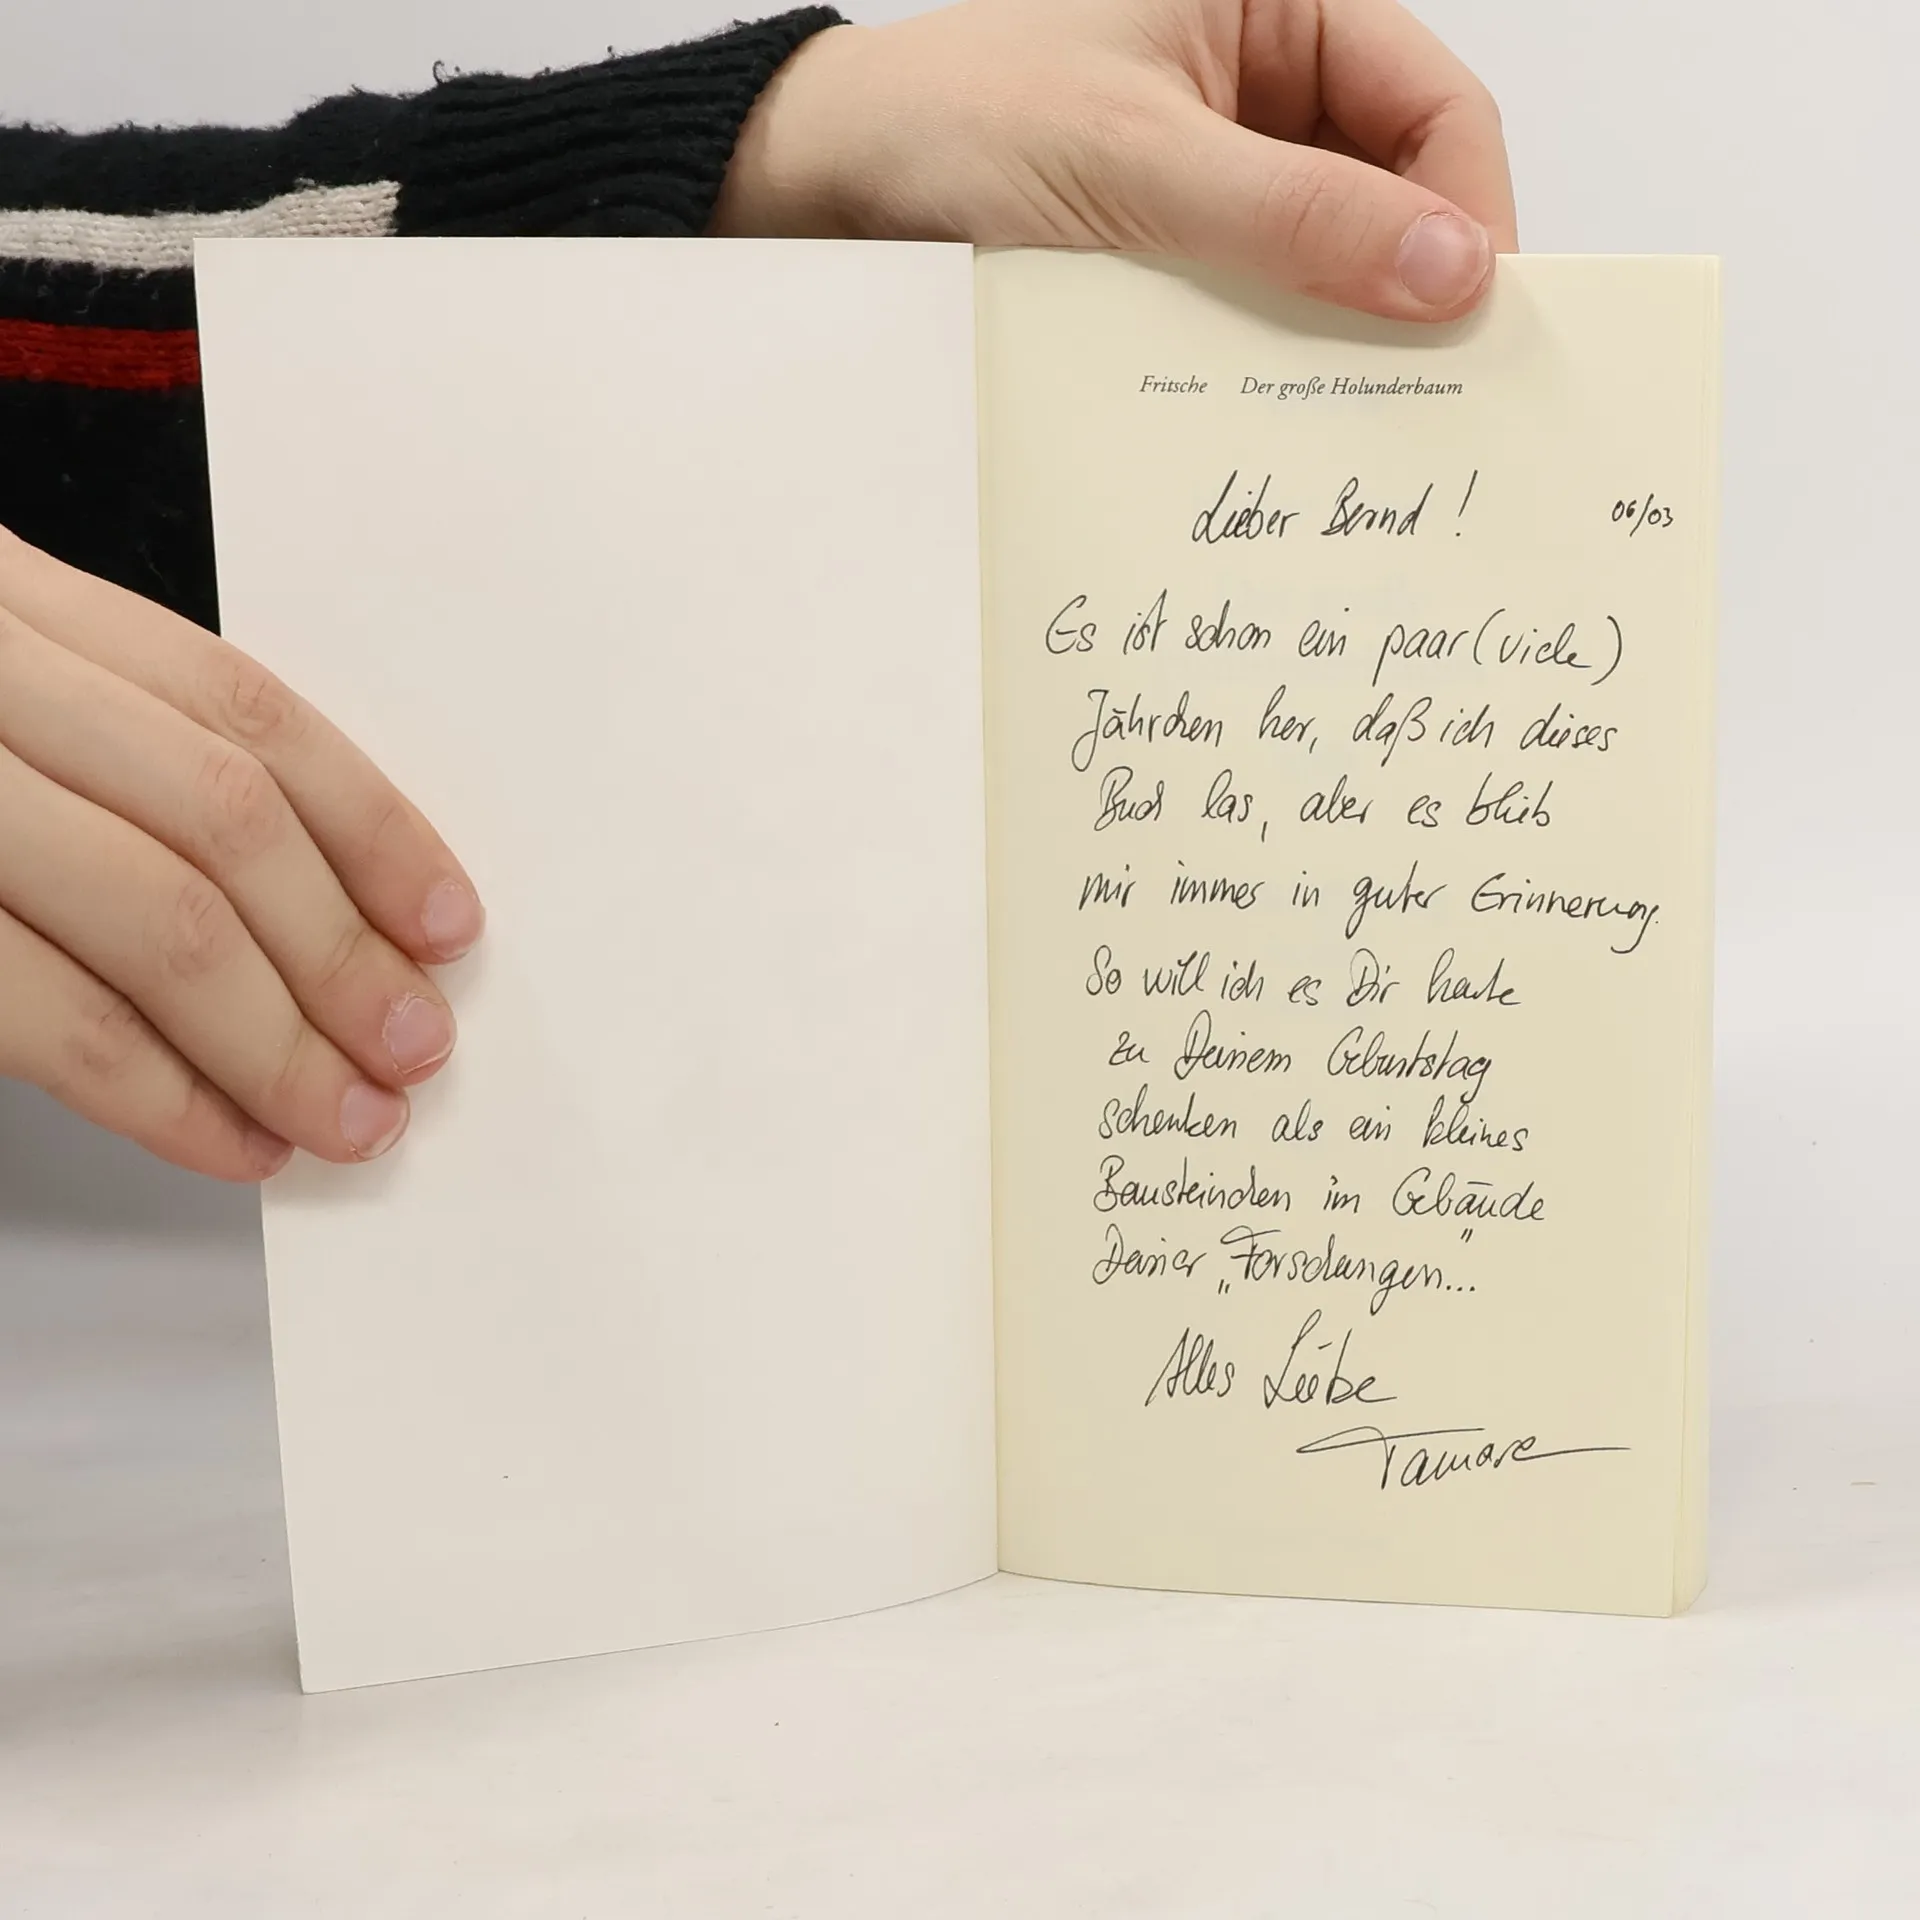 Fritsche Der große Holunderbaum
Lieber Bernd! 06/03
Es ist schon ein paar (viele)
Jährchen her, daß ich dieses
Buch las, aber es blieb
mir immer in guter Erinnerung.
So will ich es Dir heute
zu Deinem Geburtstag
schenken als ein kleines
Bausteinchen im Gebäude
Deiner „Forschungen..."
Alles Liebe
Tamara